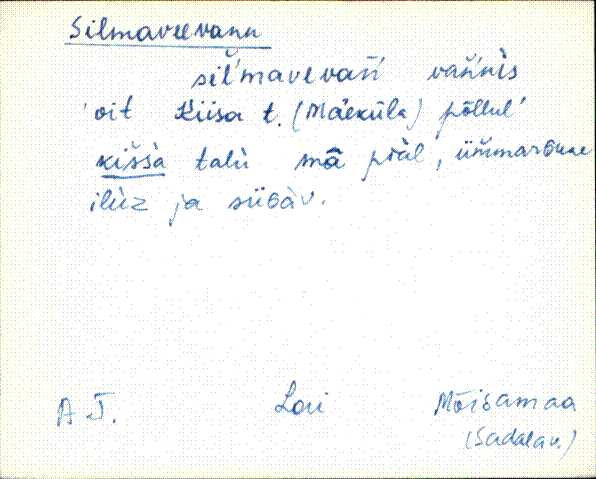 Silmaveevann
sil'mavevan̆ń van̆ńnìs
oit Kiisa t. (Mäeküla) põllul'
kiššà talù mā pèàl, ümmarGune
ilùz ja süGàv.
A. J. Lori Mõisamaa
(Sadalav.)